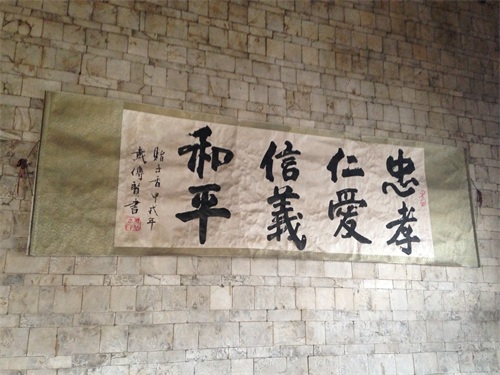 忠孝
仁愛
信義
和平
甲戌年
戴傳賢書